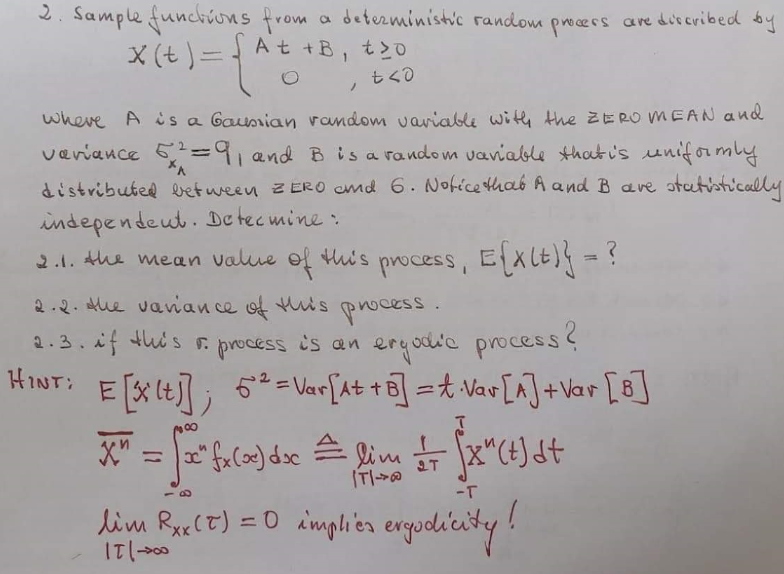 2. Sample functions from a deterministic random process are discribed by
X(t) = { At + B, t ≥ 0
0, t < 0
where A is a Gaussian random variable with the ZERO MEAN and
variance σ²_{x_A} = 9, and B is a random variable that is uniformly
distributed between ZERO and 6. Notice that A and B are statistically
independent. Determine:
2.1. the mean value of this process, E{X(t)} = ?
2.2. the variance of this process.
2.3. if this r. process is an ergodic process?
HINT: E[X(t)]; σ² = Var[At + B] = t·Var[A] + Var[B]
\overline{X^n} = ∫_{-∞}^{∞} x^n f_x(x) dx ≜ lim_{|T|→∞} 1/2T ∫_{-T}^{T} X^n(t) dt
lim_{|τ|→∞} R_{xx}(τ) = 0 implies ergodicity!